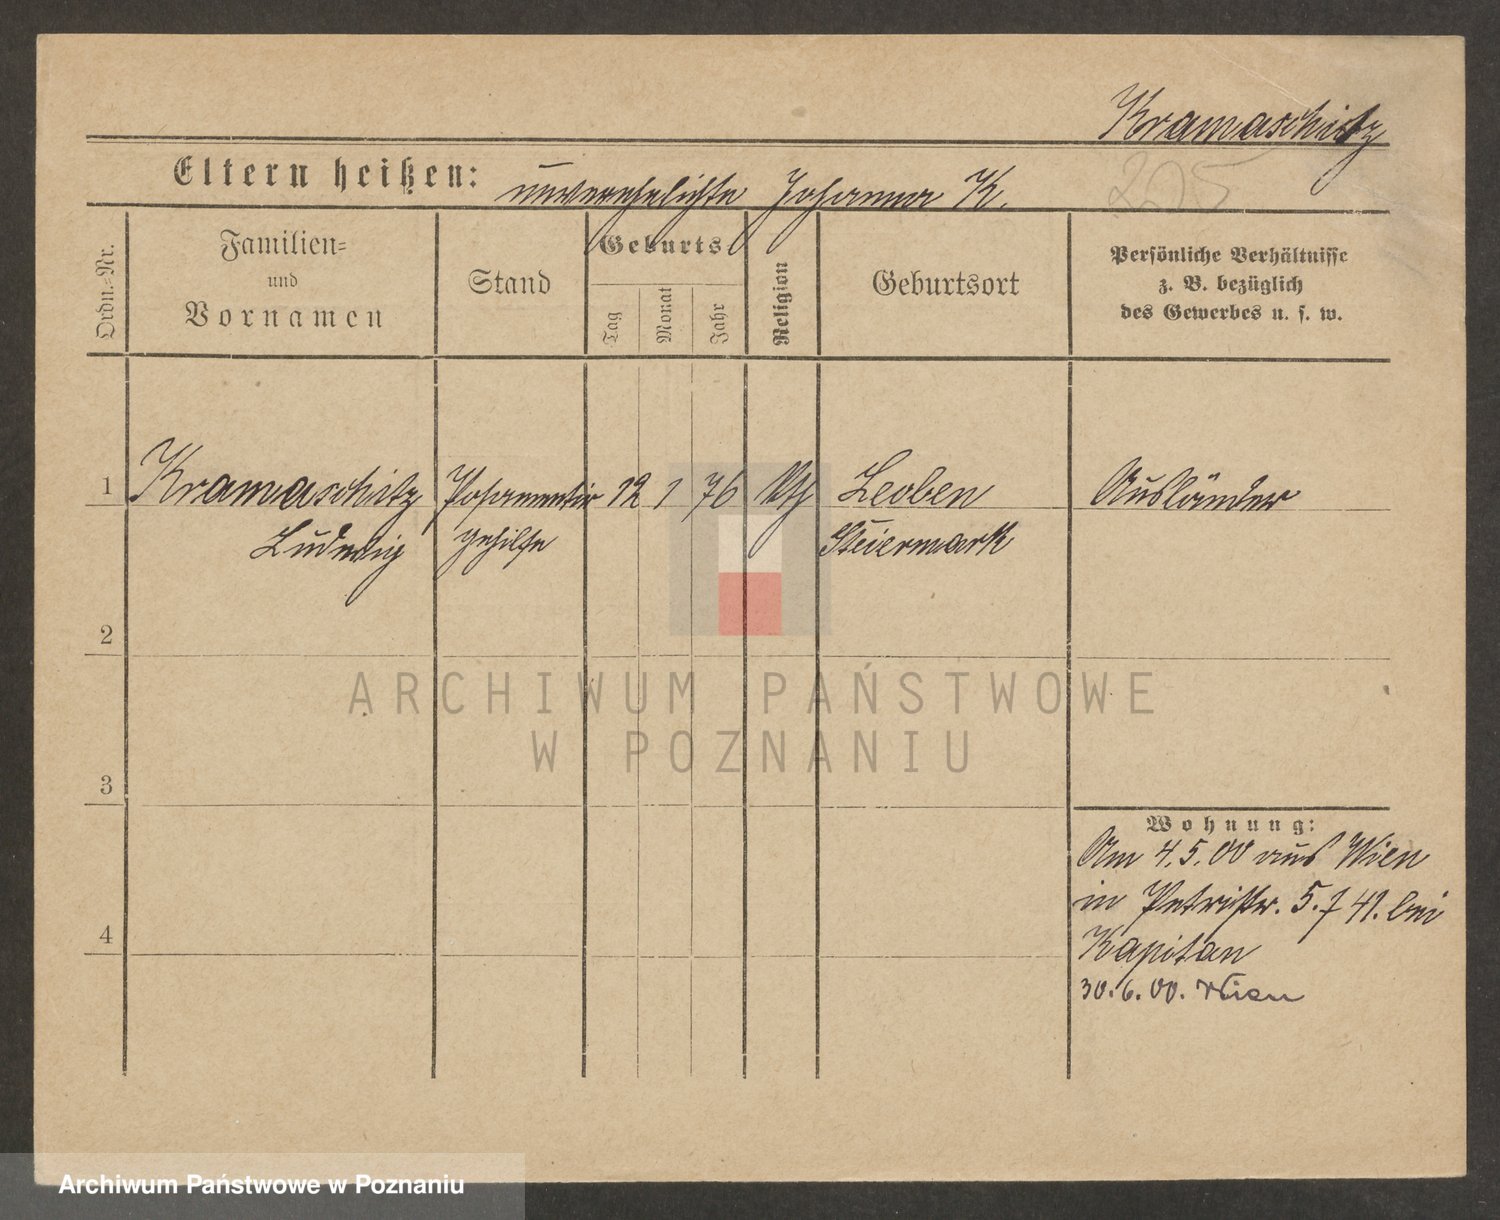 Kramaschitz
205
Eltern heißen: unverehelichte Johanna K.
Ordn.=Nr.
Familien=
und
Vornamen
Stand
Geburts-
Tag
Monat
Jahr
Religion
Geburtsort
Persönliche Verhältnisse
z. B. bezüglich
des Gewerbes u. s. w.
1 Kramaschitz Posamentir 12 1 76 Leoben Ausländer
Ludwig gehilfe Steiermark
2
ARCHIWUM PAŃSTWOWE
W POZNANIU
3
Wohnung:
Am 4.5.00 aus Wien
in Petristr. 5. 41. bei
4
Kapitan
30.6.00. Wien
Archiwum Państwowe w Poznaniu